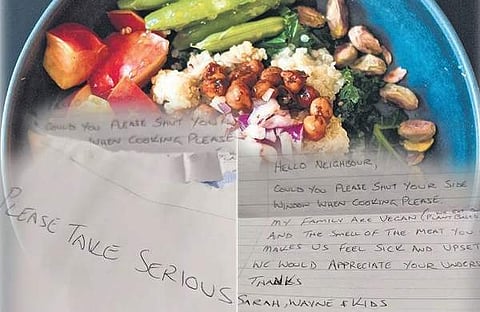 COULD YOU PLEASE SHUT YOU
WHEN COOKING PLEASE
PLEASE TAKE SERIOUS
HELLO NEIGHBOUR,
COULD YOU PLEASE SHUT YOUR SIDE
WINDOW WHEN COOKING PLEASE.
MY FAMILY ARE VEGAN (PLANT BASED
AND THE SMELL OF THE MEAT YOU
MAKES US FEEL SICK AND UPSET
WE WOULD APPRECIATE YOUR UNDERS
THANKS
SARAH, WAYNE & KIDS